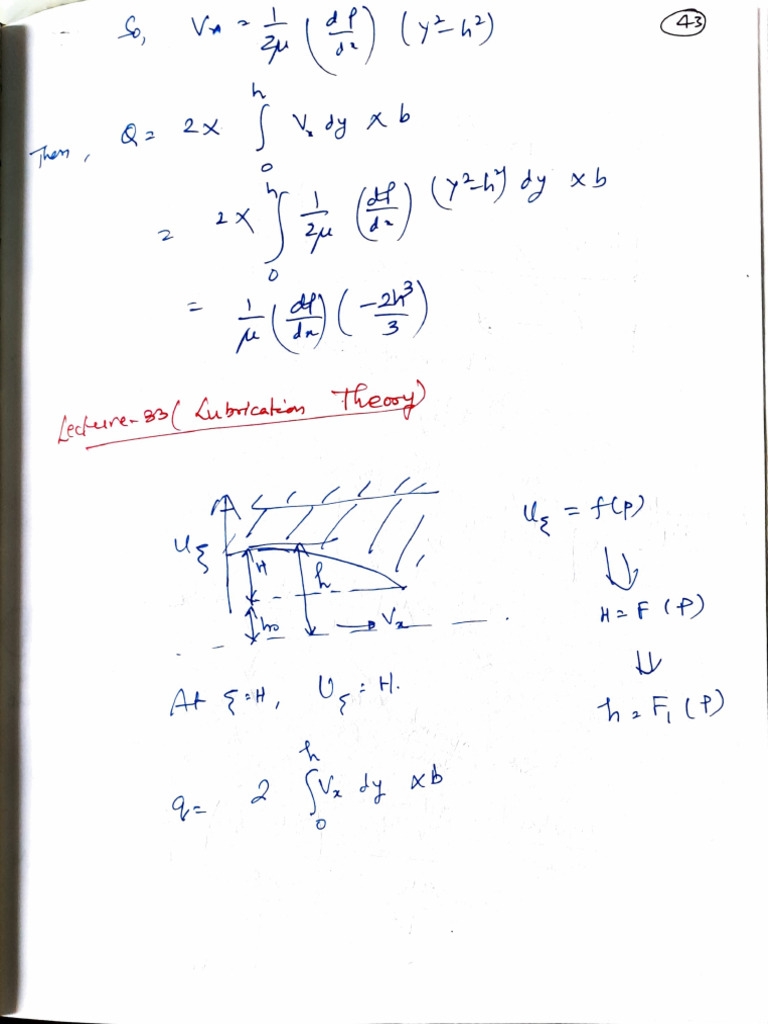 43
So, Vx = 1/2μ (dP/dx) (y²-h²)
Then, Q = 2x ∫₀ʰ Vx dy x b
= 2x ∫₀ʰ 1/2μ (dP/dx) (y²-h²) dy x b
= 1/μ (dP/dx) (-2h³/3)
Lecture-33 (Lubrication Theory)
Uξ
H
h
h0
Vx
Uξ = f(P)
⇓
H = F (P)
⇓
h = F₁ (P)
At ξ=H, Uξ = H.
q = 2 ∫₀ʰ Vx dy x b